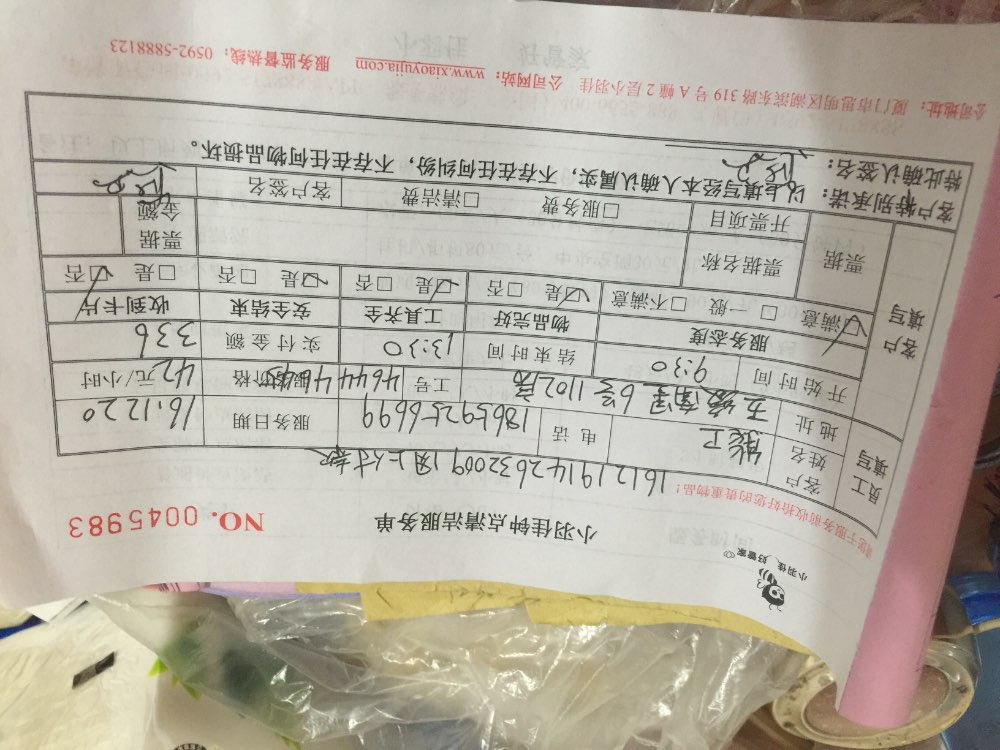 小羽佳，好管家
小羽佳钟点清洁服务单
NO. 0045983
于服务前收拾好您的贵重物品！
161219142632009 网上付款
员工填写 客户姓名 熊卫 电话 18659256699 服务日期 16.12.20
地址 6号1102房 工号 服务价格 42元/小时
客户填写 开始时间 9:30 结束时间 13:30 实付金额 336
服务态度 物品完好 工具齐全 安全结束 收到卡片
☑满意 □一般 □不满意 ☑是 □否 ☑是 □否 ☑是 □否 □是 ☑否
票据 票据名称 票据金额
开票项目 □服务费 □清洁费 客户签名
客户特别承诺：以上填写经本人确认属实，不存在任何纠纷，不存在任何物品损坏。
特此确认签名：
公司地址：厦门市思明区湖滨东路 319 号 A 幢 2 层小羽佳 公司网站：www.xiaoyujia.com 服务监督热线：0592-5888123